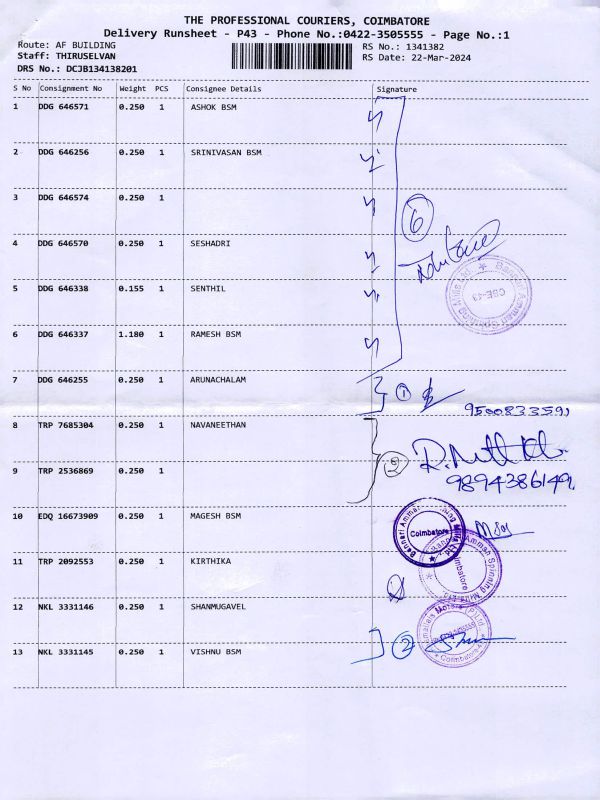 THE PROFESSIONAL COURIERS, COIMBATORE
Delivery Runsheet - P43 - Phone No.:0422-3505555 - Page No.:1
Route: AF BUILDING
Staff: THIRUSELVAN
DRS No.: DCJB134138201
RS No.: 1341382
RS Date: 22-Mar-2024
S No Consignment No Weight PCS Consignee Details Signature
1 DDG 646571 0.250 1 ASHOK BSM
2 DDG 646256 0.250 1 SRINIVASAN BSM
3 DDG 646574 0.250 1
6
4 DDG 646570 0.250 1 SESHADRI
Bannari Amman Spinning Mills Ltd.
CBE-43
5 DDG 646338 0.155 1 SENTHIL
6 DDG 646337 1.180 1 RAMESH BSM
7 DDG 646255 0.250 1 ARUNACHALAM
1
9500833591
8 TRP 7685304 0.250 1 NAVANEETHAN
2
9894386149
9 TRP 2536869 0.250 1
10 EDQ 16673909 0.250 1 MAGESH BSM
Bannari Amman Spinning Mills Ltd
Coimbatore
11 TRP 2092553 0.250 1 KIRTHIKA
Amman Spinning Mills
Coimbatore
12 NKL 3331146 0.250 1 SHANMUGAVEL
13 NKL 3331145 0.250 1 VISHNU BSM
2
Motors (P) Ltd.
Coimbatore